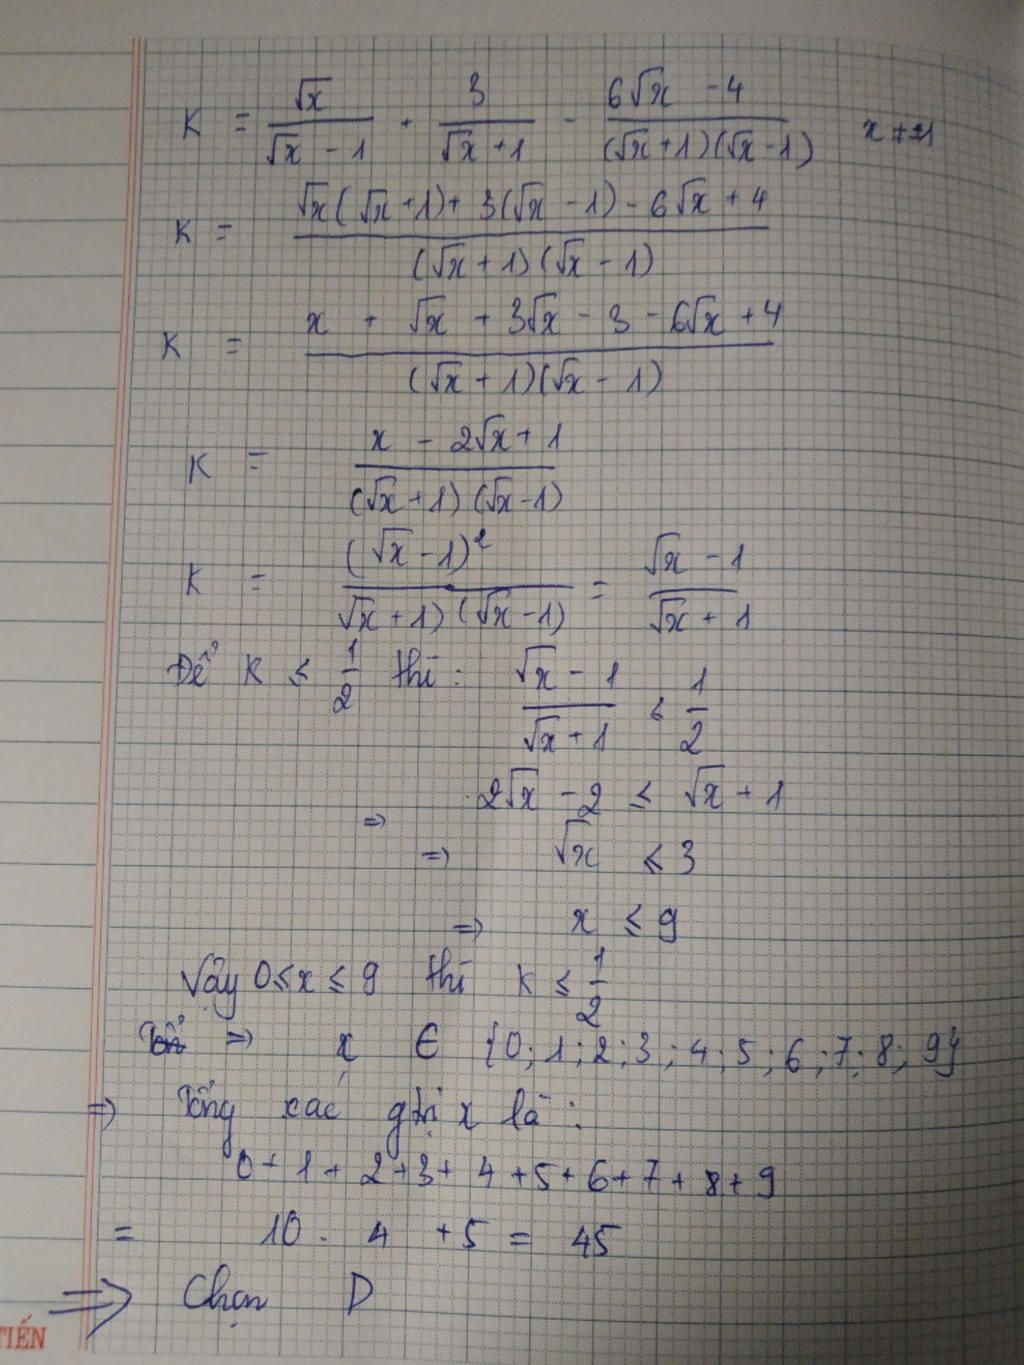 K = √x/(√x - 1) + 3/(√x + 1) - (6√x - 4)/((√x + 1)(√x - 1)) x ≠ ±1
K = (√x(√x + 1) + 3(√x - 1) - 6√x + 4)/((√x + 1)(√x - 1))
K = (x + √x + 3√x - 3 - 6√x + 4)/((√x + 1)(√x - 1))
K = (x - 2√x + 1)/((√x + 1)(√x - 1))
K = (√x - 1)²/(√x + 1)(√x - 1) = (√x - 1)/(√x + 1)
Để K ≤ 1/2 thì: (√x - 1)/(√x + 1) ≤ 1/2
⇒ 2√x - 2 ≤ √x + 1
⇒ √x ≤ 3
⇒ x ≤ 9
Vậy 0 ≤ x ≤ 9 thì K ≤ 1/2
⇒ x ∈ {0; 1; 2; 3; 4; 5; 6; 7; 8; 9}
⇒ Tổng các gtrị x là:
0 + 1 + 2 + 3 + 4 + 5 + 6 + 7 + 8 + 9
= 10 . 4 + 5 = 45
⇒ Chọn D
TIẾN